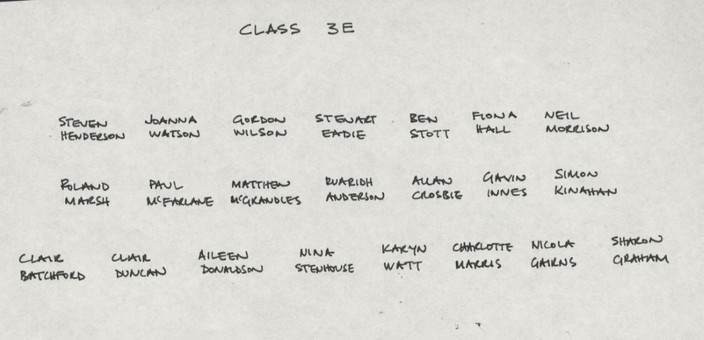 CLASS 3E
STEVEN JOANNA GORDON STEWART BEN FIONA NEIL
HENDERSON WATSON WILSON EADIE STOTT HALL MORRISON
ROLAND PAUL MATTHEW RUARIDH ALLAN GAVIN SIMON
MARSH MCFARLANE MCGRANDLES ANDERSON CROSBIE INNES KINAHAN
CLAIR CLAIR AILEEN NINA KARYN CHARLOTTE NICOLA SHARON
BATCHFORD DUNCAN DONALDSON STENHOUSE WATT MARRIS GAIRNS GRAHAM